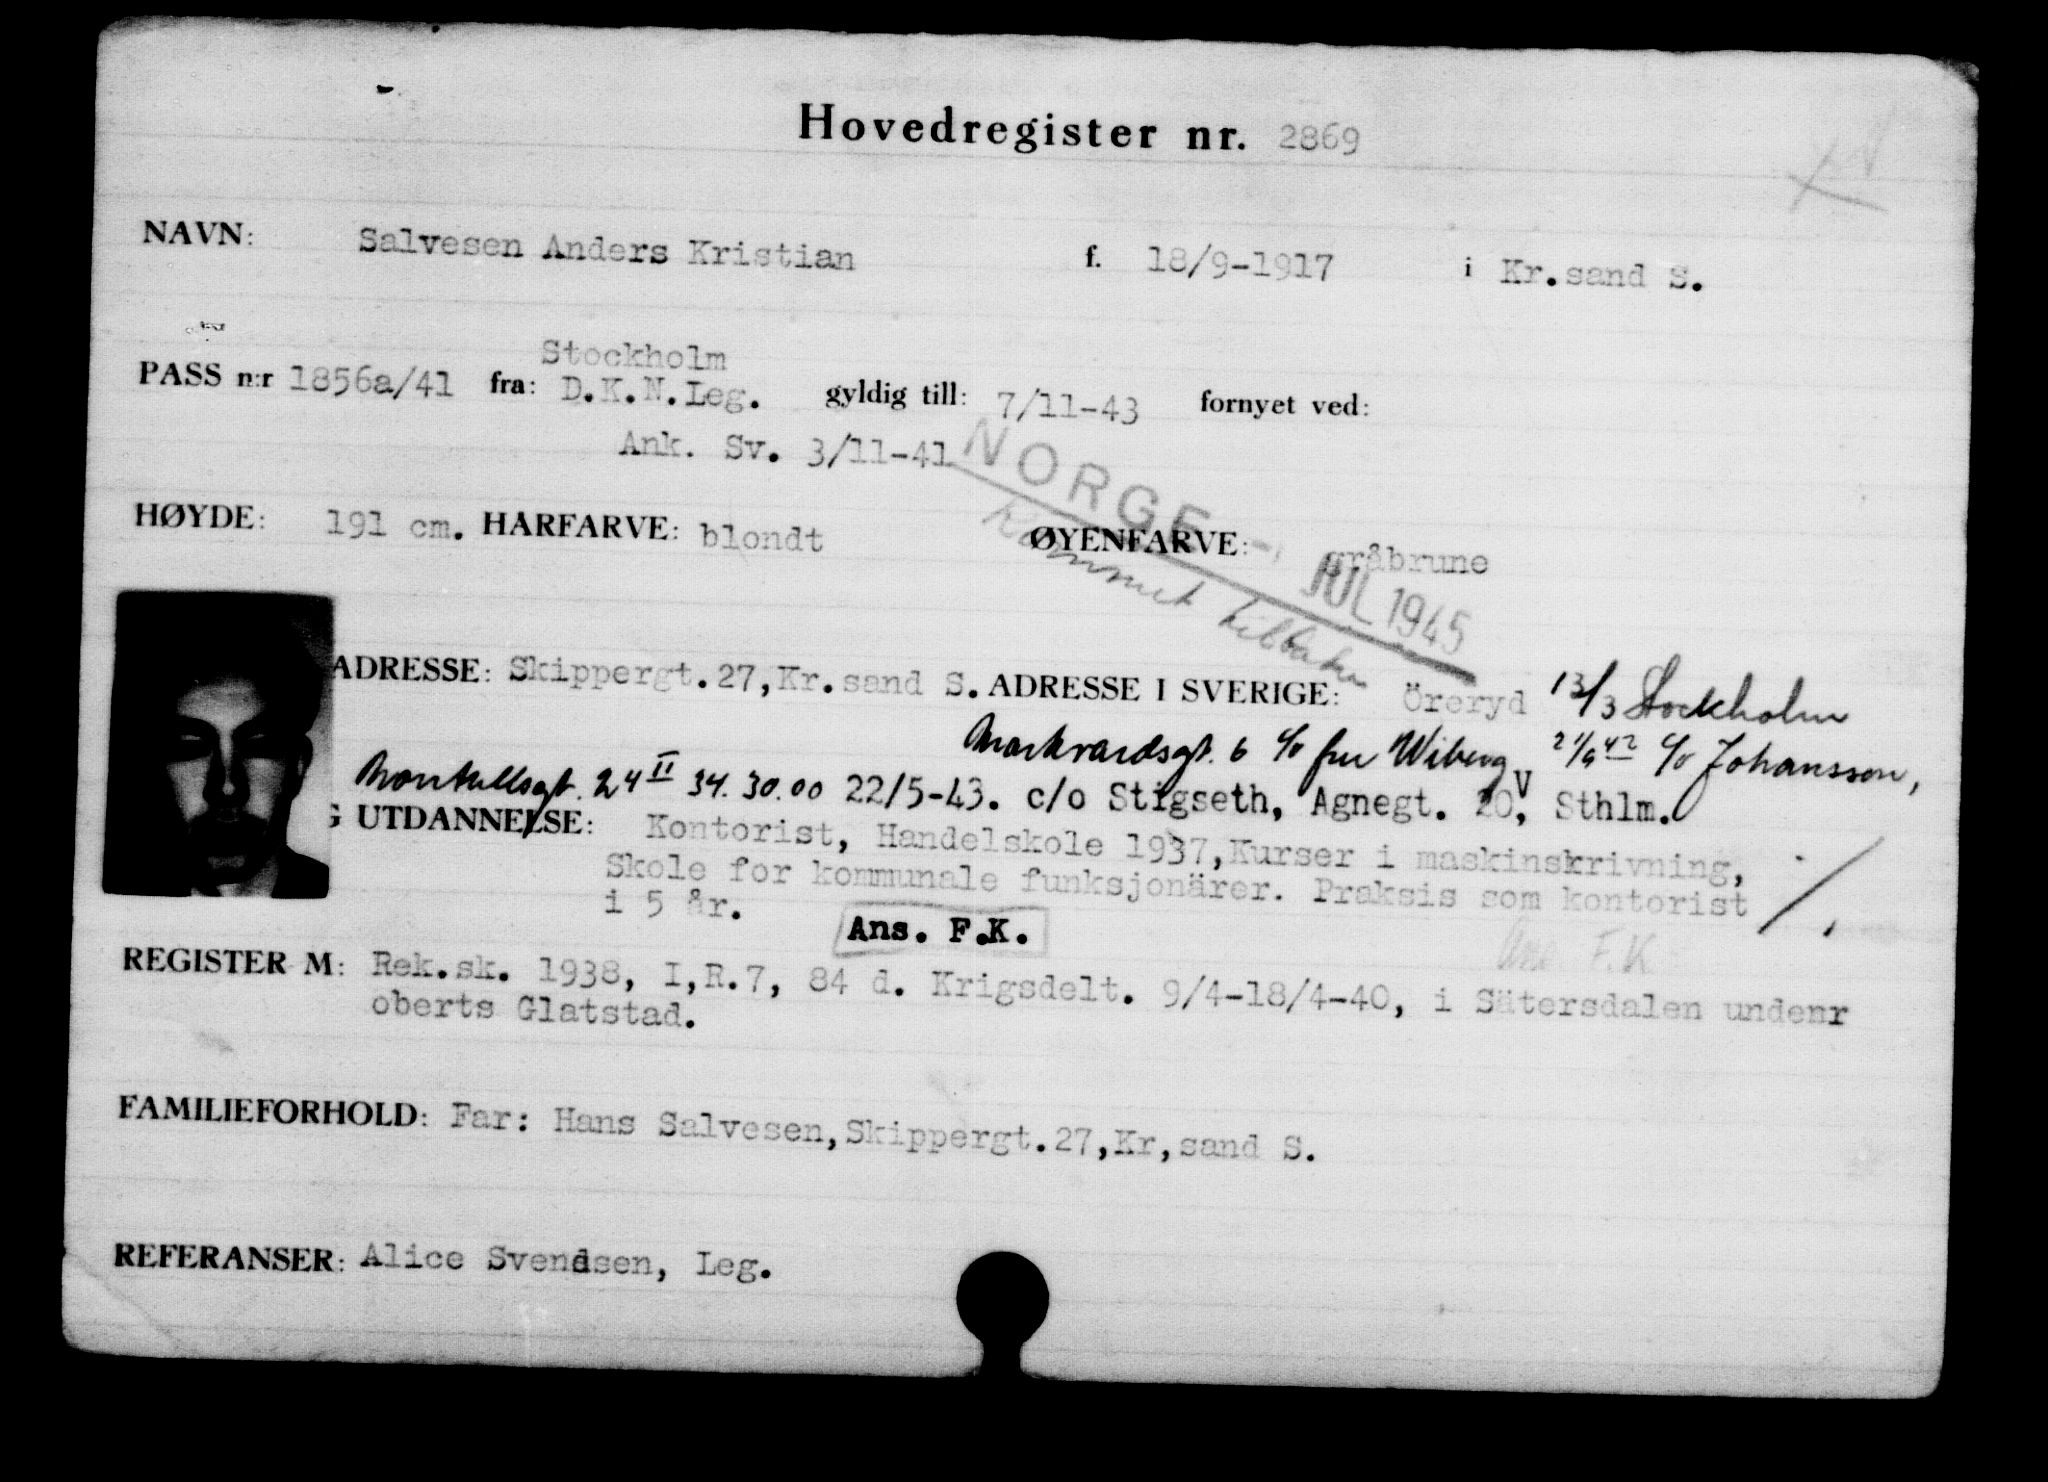 Hovedregister nr. 2869
NAVN: Salvesen Anders Kristian f. 18/9-1917 i Kr.sand S.
Stockholm
PASS n:r 1856a/41 fra: D.K.N.Leg. gyldig till: 7/11-43 fornyet ved:
Ank. Sv. 3/11-41
NORGE
HØYDE: 191 cm. HARFARVE: blondt ØYENFARVE: gråbrune
kommet tilbake
JUL 1945
ADRESSE: Skippergt.27,Kr.sand S. ADRESSE I SVERIGE: Öreryd 13/3 Stockholm
Markvardsgt. 6 c/o fru Wiberg, 21/9 42 c/o Johansson,
24 II 34.30.00 22/5-43. c/o Stigseth, Agnegt. 20, V Sthlm.
G UTDANNELSE: Kontorist, Handelskole 1937,Kurser i maskinskrivning,
Skole for kommunale funksjonärer. Praksis som kontorist
i 5 år.
Ans. F.K.
Ans F.K
REGISTER M: Rek.sk. 1938, I,R.7, 84 d. Krigsdelt. 9/4-18/4-40, i Sätersdalen undenr
oberts Glatstad.
FAMILIEFORHOLD: Far: Hans Salvesen,Skippergt.27,Kr,sand S.
REFERANSER: Alice Svendsen, Leg.